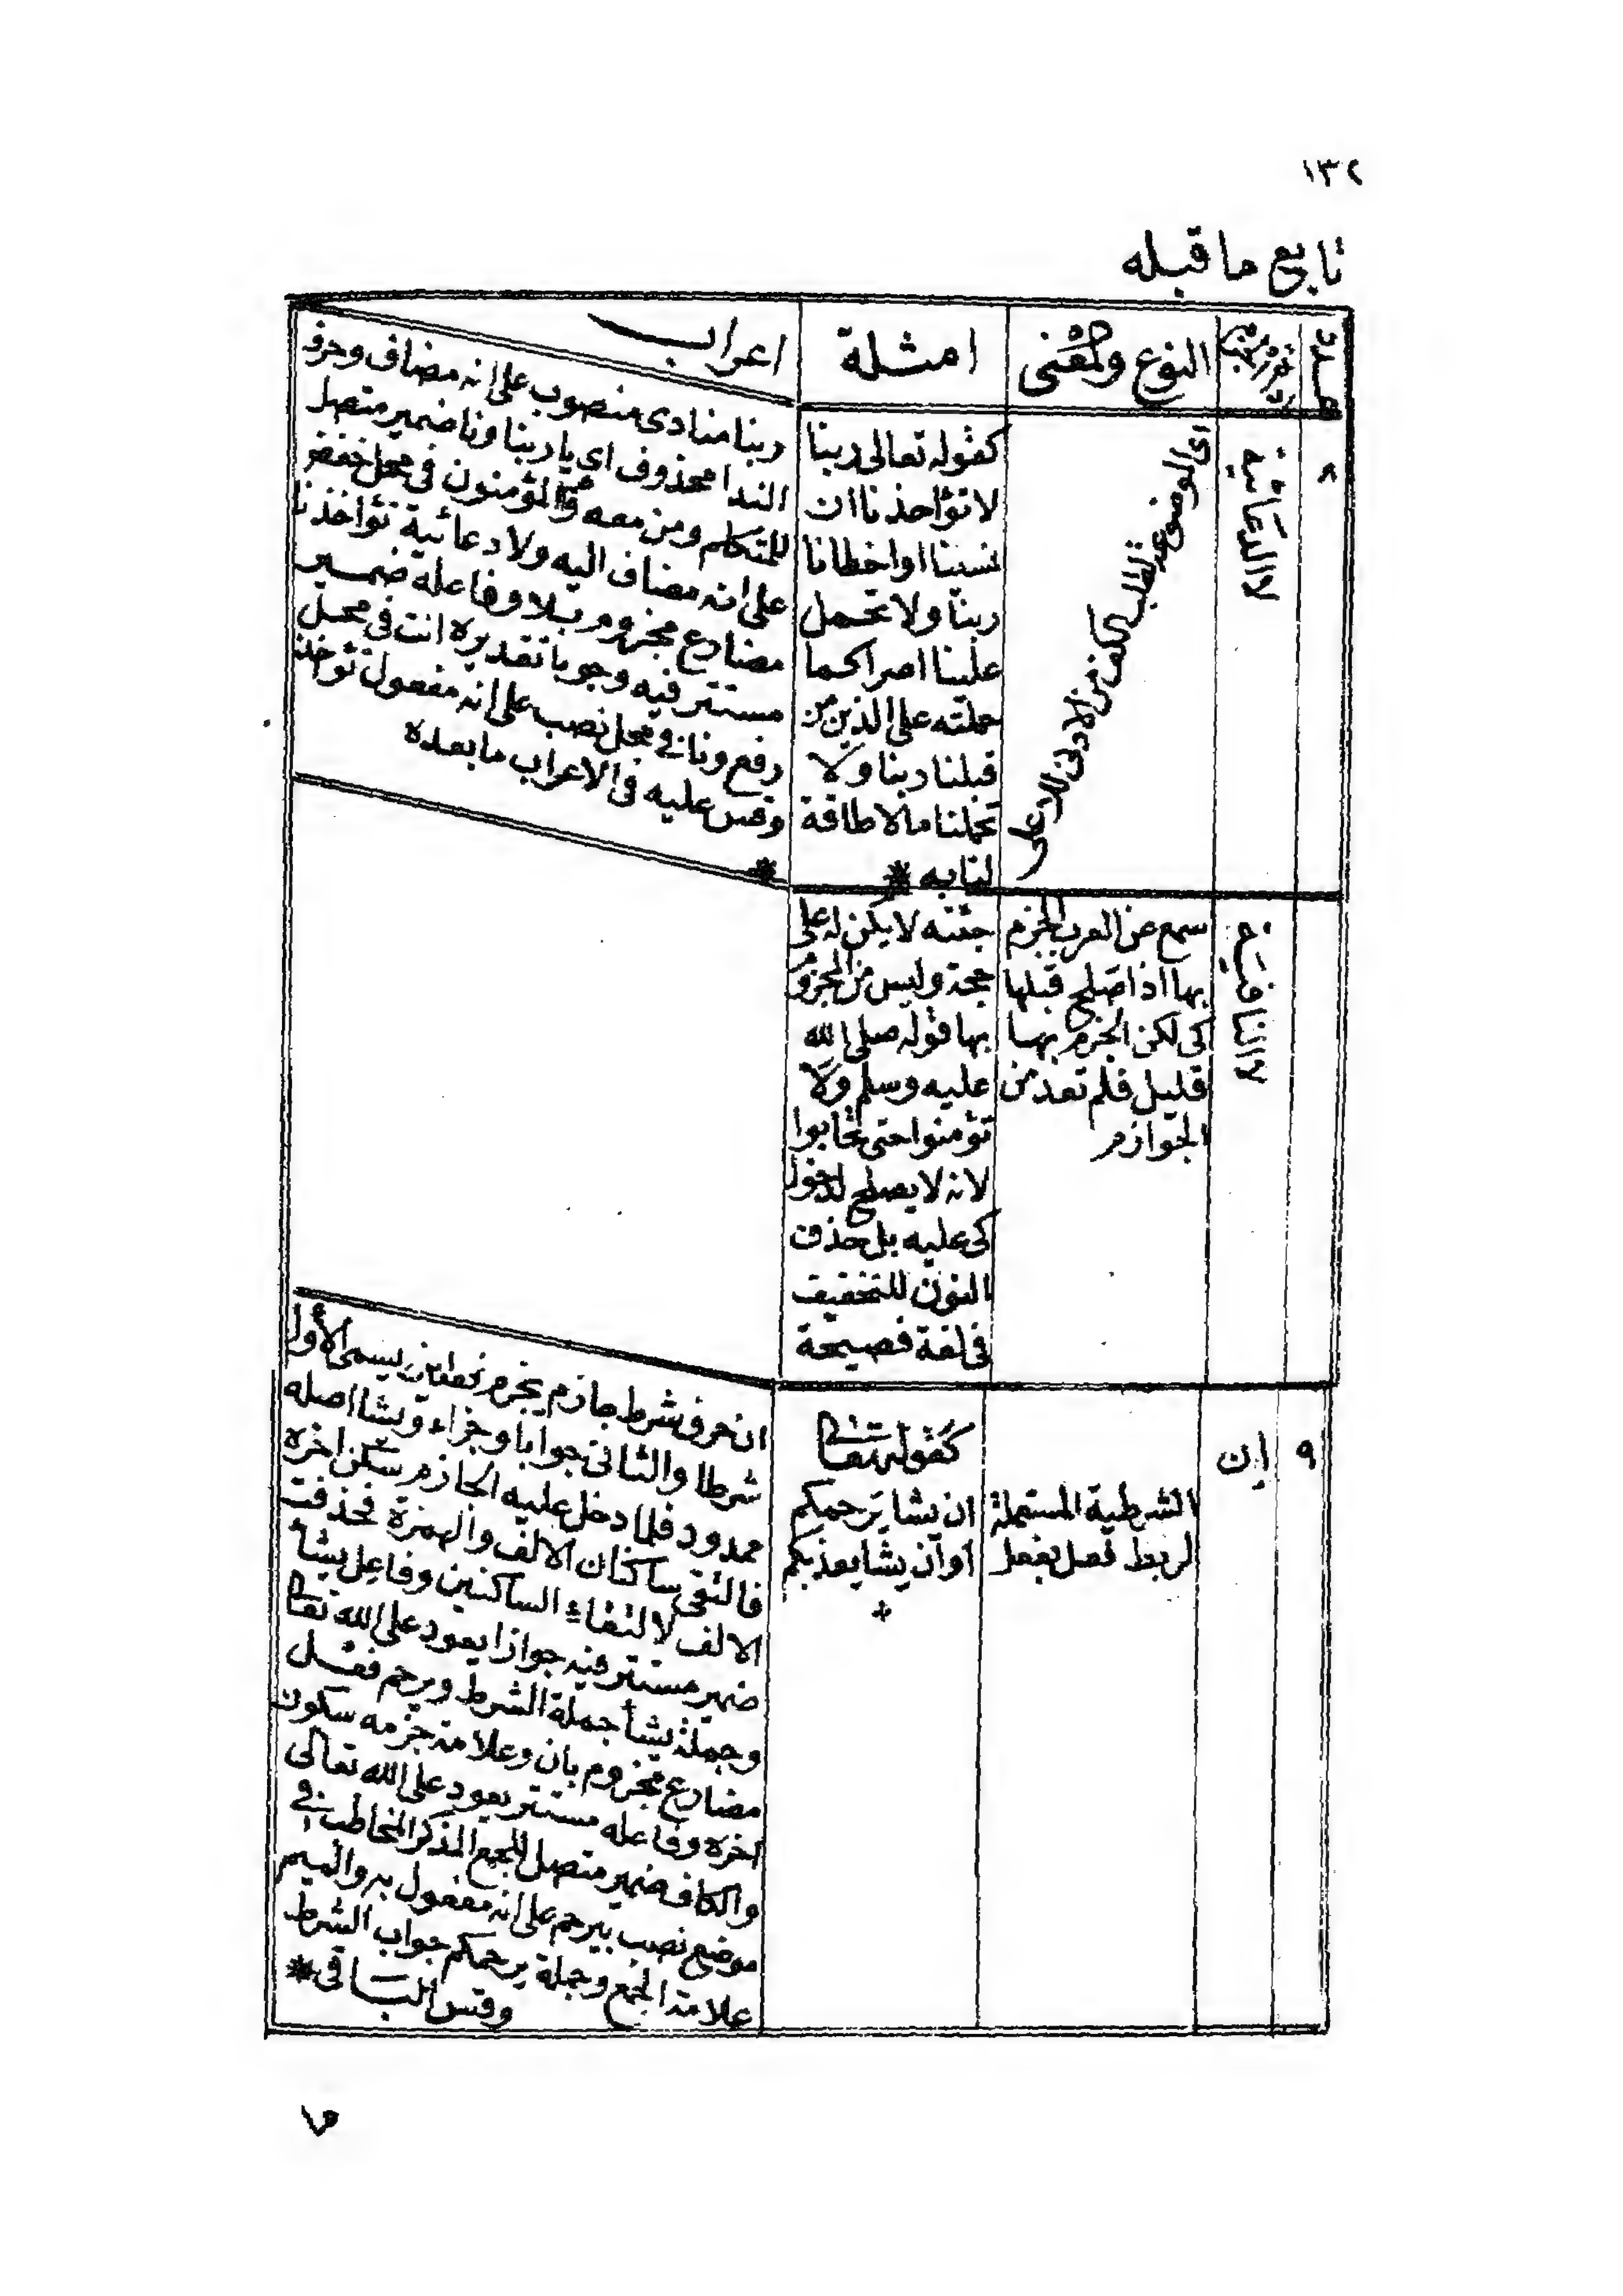 ١٣٢
تابع ما قبله
عدد
النوع والمعنى
امثلة
اعراب
٨
لا الدعائية
اى الموضوعة لطلب الكف من الادنى للاعلى
كقوله تعالى ربنا
لا تؤاخذنا ان
نسينا او اخطانا
ربنا ولا تحمل
علينا اصرا كما
حملته على الذين من
قبلنا ربنا ولا
تحملنا مالا طاقة
لنا به *
ربنا منادى منصوب على انه مضاف وحرف
الندا محذوف اى يا ربنا ونا ضمير متصل
للمتكلم ومن معه والمؤمنون فى محل خفض
على انه مضاف اليه ولا دعائية تؤاخذنا
مضارع مجزوم بلا وفاعله ضمير
مستتر فيه وجوبا تقديره انت فى محل
رفع ونا فى محل نصب على انه مفعول تؤاخذ
وقس عليه فى الاعراب ما بعده
*
لا النافية
سمع من العرب الجزم
بها اذا صلح قبلها
كى لكن الجزم بها
قليل فلم تعد من
الجوازم
جئته لا يكن له على
حجة وليس من الجزم
بها قوله صلى الله
عليه وسلم ولا
تؤمنوا حتى تحابوا
لانه لا يصلح لدخول
كى عليه بل حذف
النون للتخفيف
فى لغة فصيحة
٩
إن
الشرطية المستعملة
لربط فعل بفعل
كقوله تعالى
ان يشا يرحمكم
او ان يشا يعذبكم
ان حرف شرط جازم يجزم فعلين يسمى الأول
شرطا والثانى جوابا وجزاء ويشا اصله
ممدود فلما دخل عليه الجازم سكن اخره
فالتقى ساكنان الالف والهمزة فحذفت
الالف لالتقاء الساكنين وفاعل يشأ
ضمير مستتر فيه جوازا يعود على الله تعالى
وجملة يشأ جملة الشرط ويرحم فعل
مضارع مجزوم بان وعلامة جزمه سكون
اخره وفاعله مستتر يعود على الله تعالى
والكاف ضمير متصل للجمع المذكر المخاطب فى
موضع نصب بيرحم على انه مفعول به والميم
علامة الجمع وجملة يرحمكم جواب الشرط
وقس الباقى *